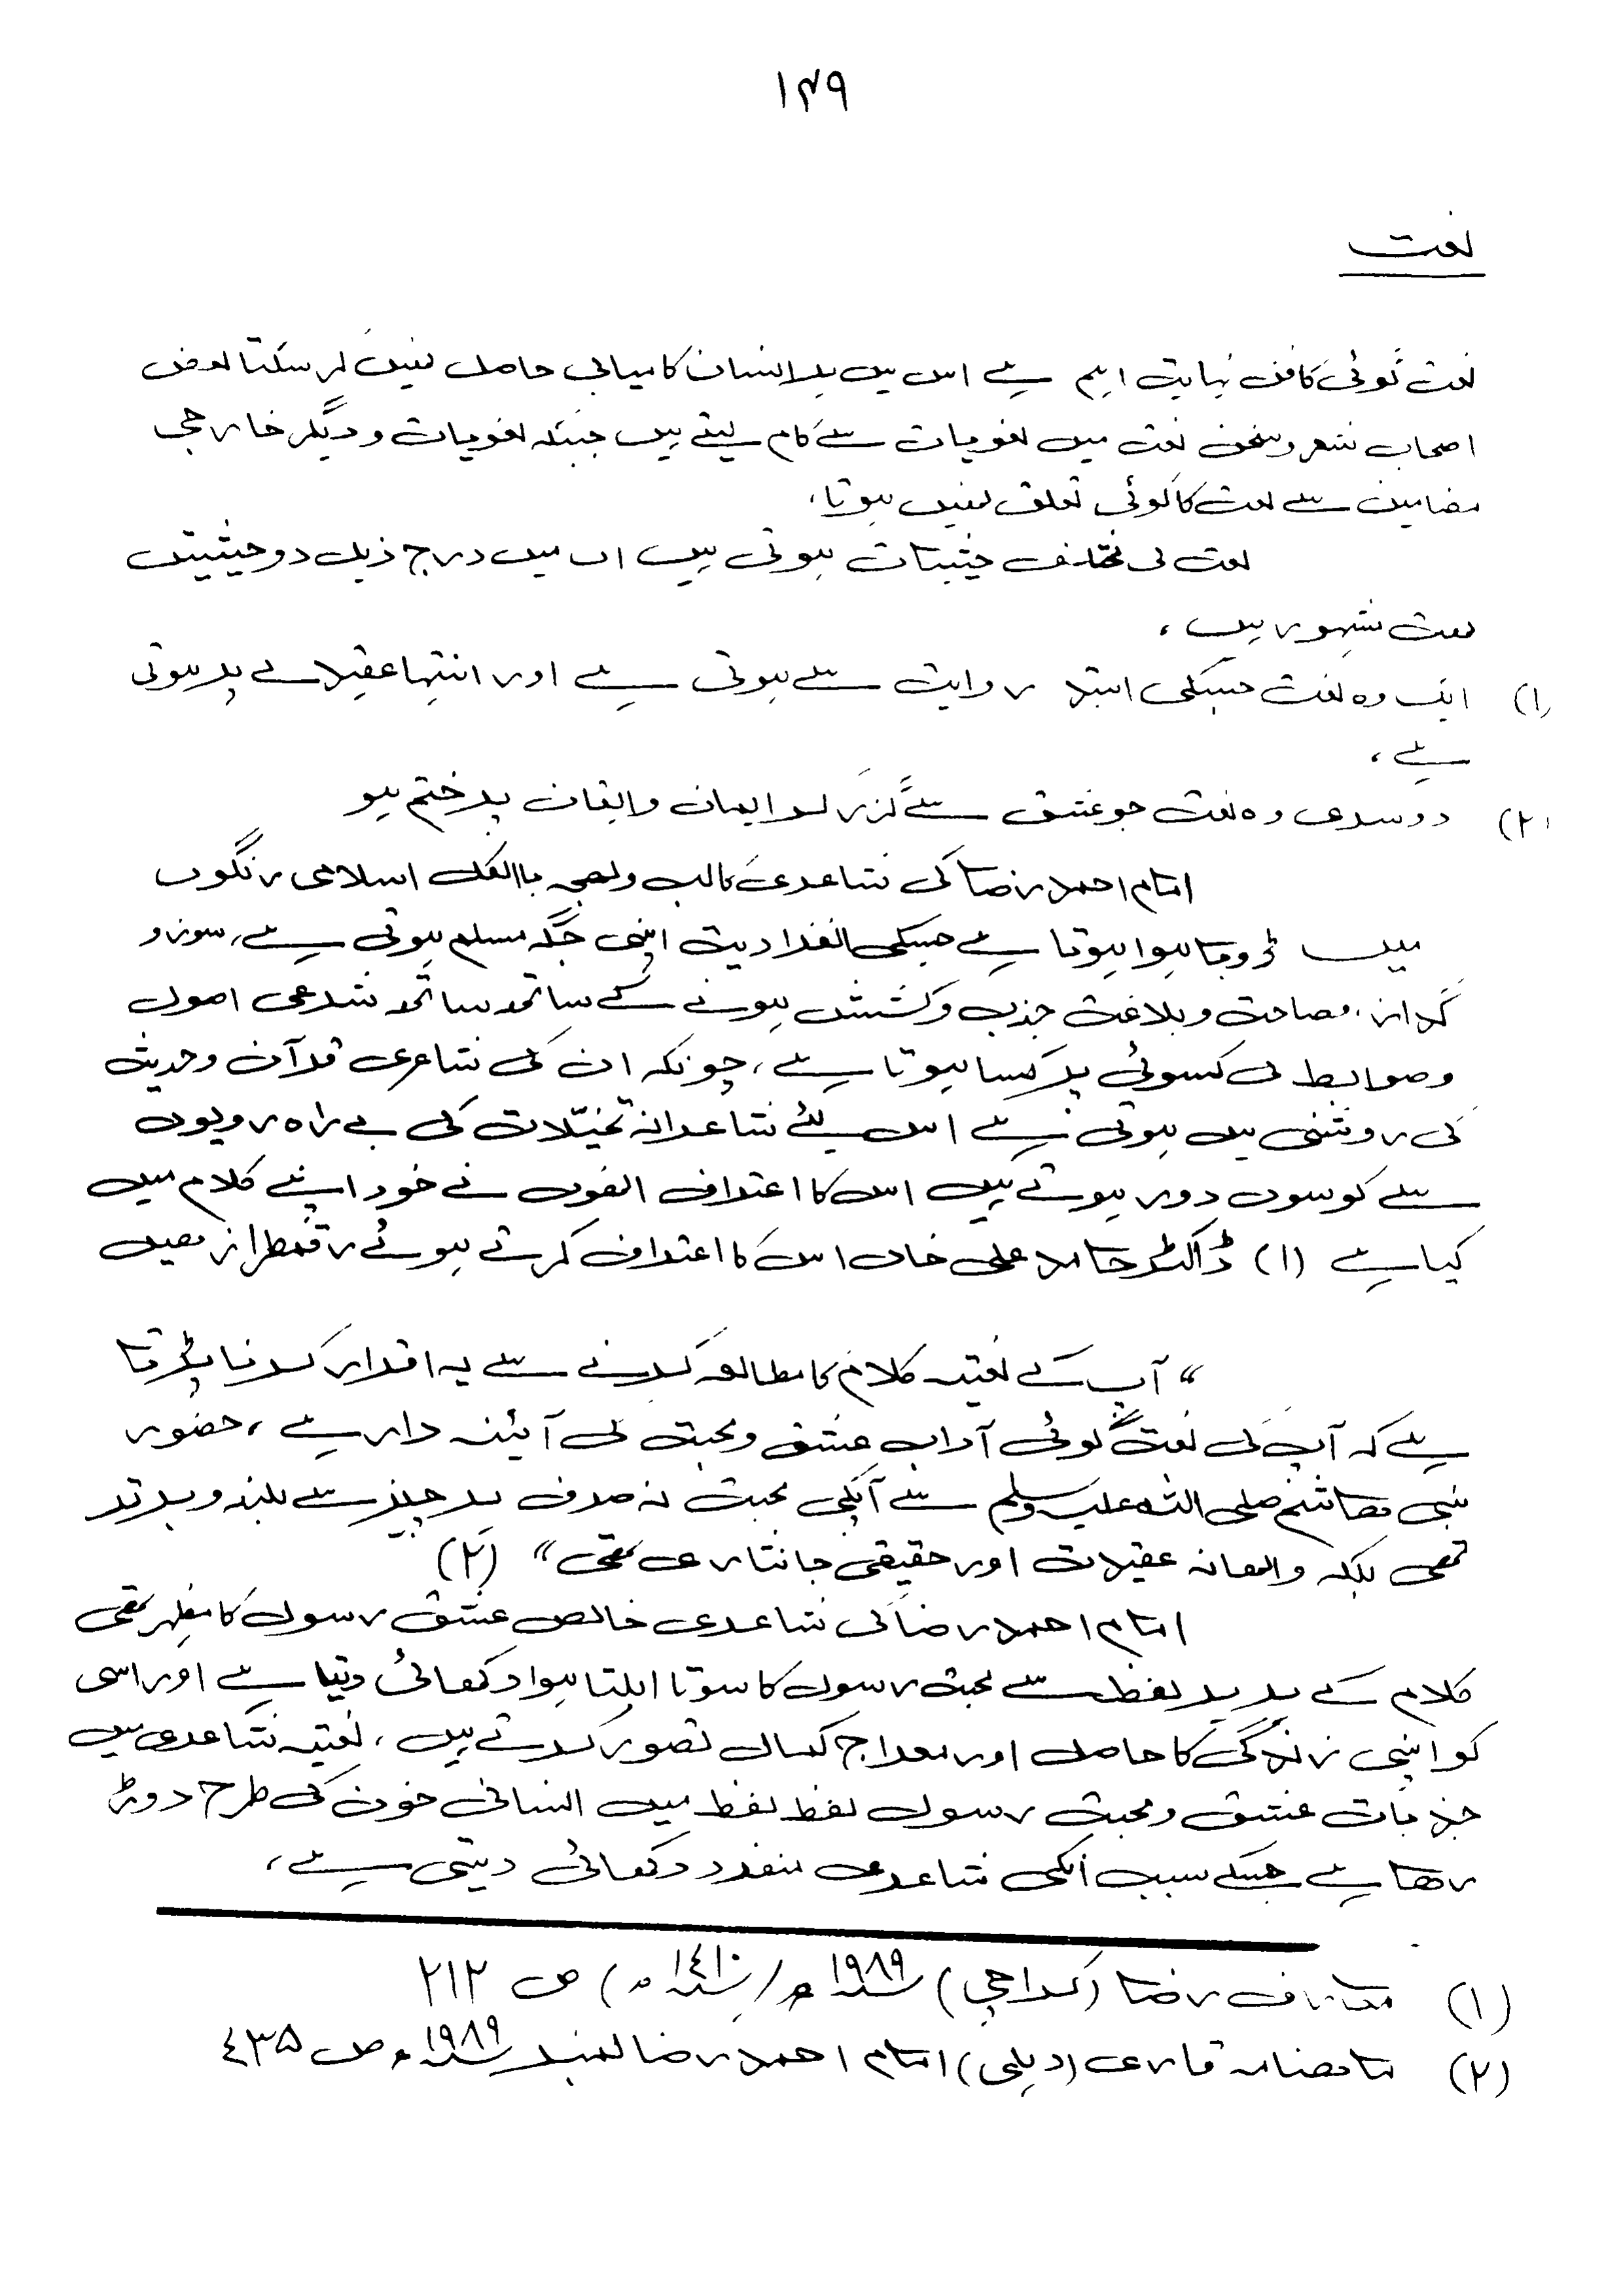 ۱۴۹
نعت
نعت گوئی کا فن نہایت اہم ہے اس میں ہر انسان کامیابی حاصل نہیں کر سکتا بعض
اصحاب شعر و سخن نعت میں لغویات سے کام لیتے ہیں جبکہ لغویات و دیگر خارجی
مضامین سے نعت کا کوئی تعلق نہیں ہوتا،
نعت کی مختلف حیثیات ہوتی ہیں ان میں درج ذیل دو حیثیتیں
بہت مشہور ہیں،
(۱) ایک وہ نعت جسکی ابتدا روایت سے ہوتی ہے اور انتہا عقیدت پر ہوتی
ہے،
(۲) دوسری وہ نعت جو عشق سے گزر کر ایمان و ایقان پر ختم ہو
امام احمد رضا کی شاعری کا لب و لہجہ بالکل اسلامی رنگوں
میں ڈوبا ہوا ہوتا ہے جسکی انفرادیت اپنی جگہ مسلم ہوتی ہے، سوز و
گداز، فصاحت و بلاغت جذب و کشش ہونے کے ساتھ ساتھ شرعی اصول
و ضوابط کی کسوٹی پر کسا ہوتا ہے، چونکہ ان کی شاعری قرآن و حدیث
کی روشنی میں ہوتی ہے اس لئے شاعرانہ تخیّلات کی بے راہ رویوں
سے کوسوں دور ہوتے ہیں اس کا اعتراف انھوں نے خود اپنے کلام میں
کیا ہے (۱) ڈاکٹر حامد علی خاں اس کا اعتراف کرتے ہوئے رقمطراز ھیں
“ آپ کے نعتیہ کلام کا مطالعہ کرنے سے یہ اقرار کرنا پڑتا
ہے کہ آپ کی نعت گوئی آداب عشق و محبت کی آئینہ دار ہے، حضور
نبی ھاشم صلی اللہ علیہ وسلم سے آپکی محبت نہ صرف ہر چیز سے بلند و برتر
تھی بلکہ والھانہ عقیدت اور حقیقی جانثاری تھی “ (۲)
امام احمد رضا کی شاعری خالص عشق رسول کا مظہر تھی
کلام کے ہر ہر لفظ سے محبت رسول کا سوتا ابلتا ہوا دکھائی دیتا ہے اور اسی
کو اپنی زندگی کا حاصل اور معراج کمال تصور کرتے ہیں، نعتیہ شاعری میں
جذبات عشق و محبت رسول لفظ لفظ میں انسانی خون کی طرح دوڑ
رھا ہے جسکے سبب انکی شاعری منفرد دکھائی دیتی ہے،
(۱) معارف رضا (کراچی) سنہ ۱۹۸۹ء / سنہ ۱٤۱۰ھ) ص ۲۱۲
(۲) ماھنامہ قاری (دہلی) امام احمد رضا نمبر سنہ ۱۹۸۹ء ص ٤۳۵